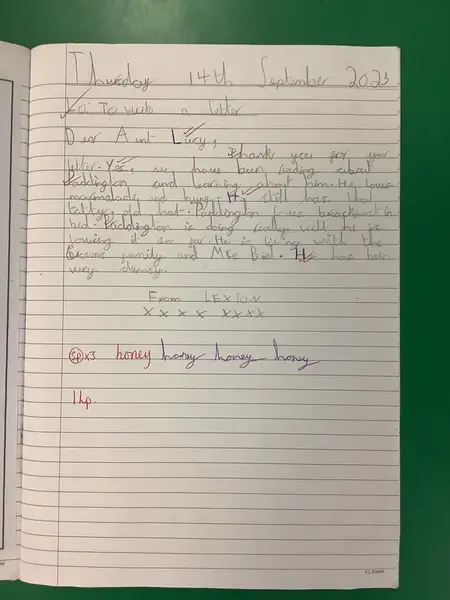 Thursday 14th September 2023
LO: To write a letter
Dear Aunt Lucy,
Thank you for your
letter. Yes, we have been reading about
Paddington and learning about him. He loves
marmalade and huny. He still has that
tattty old hat. Paddington has breackfast in
bed. Paddington is doing really well he is
loweing it so far. He is living with the
Browns family and Mrs Bird. He has been
very clumsy.
From LEXION
x x x x x x x x
sp x3 honey honey honey honey
1 hp.